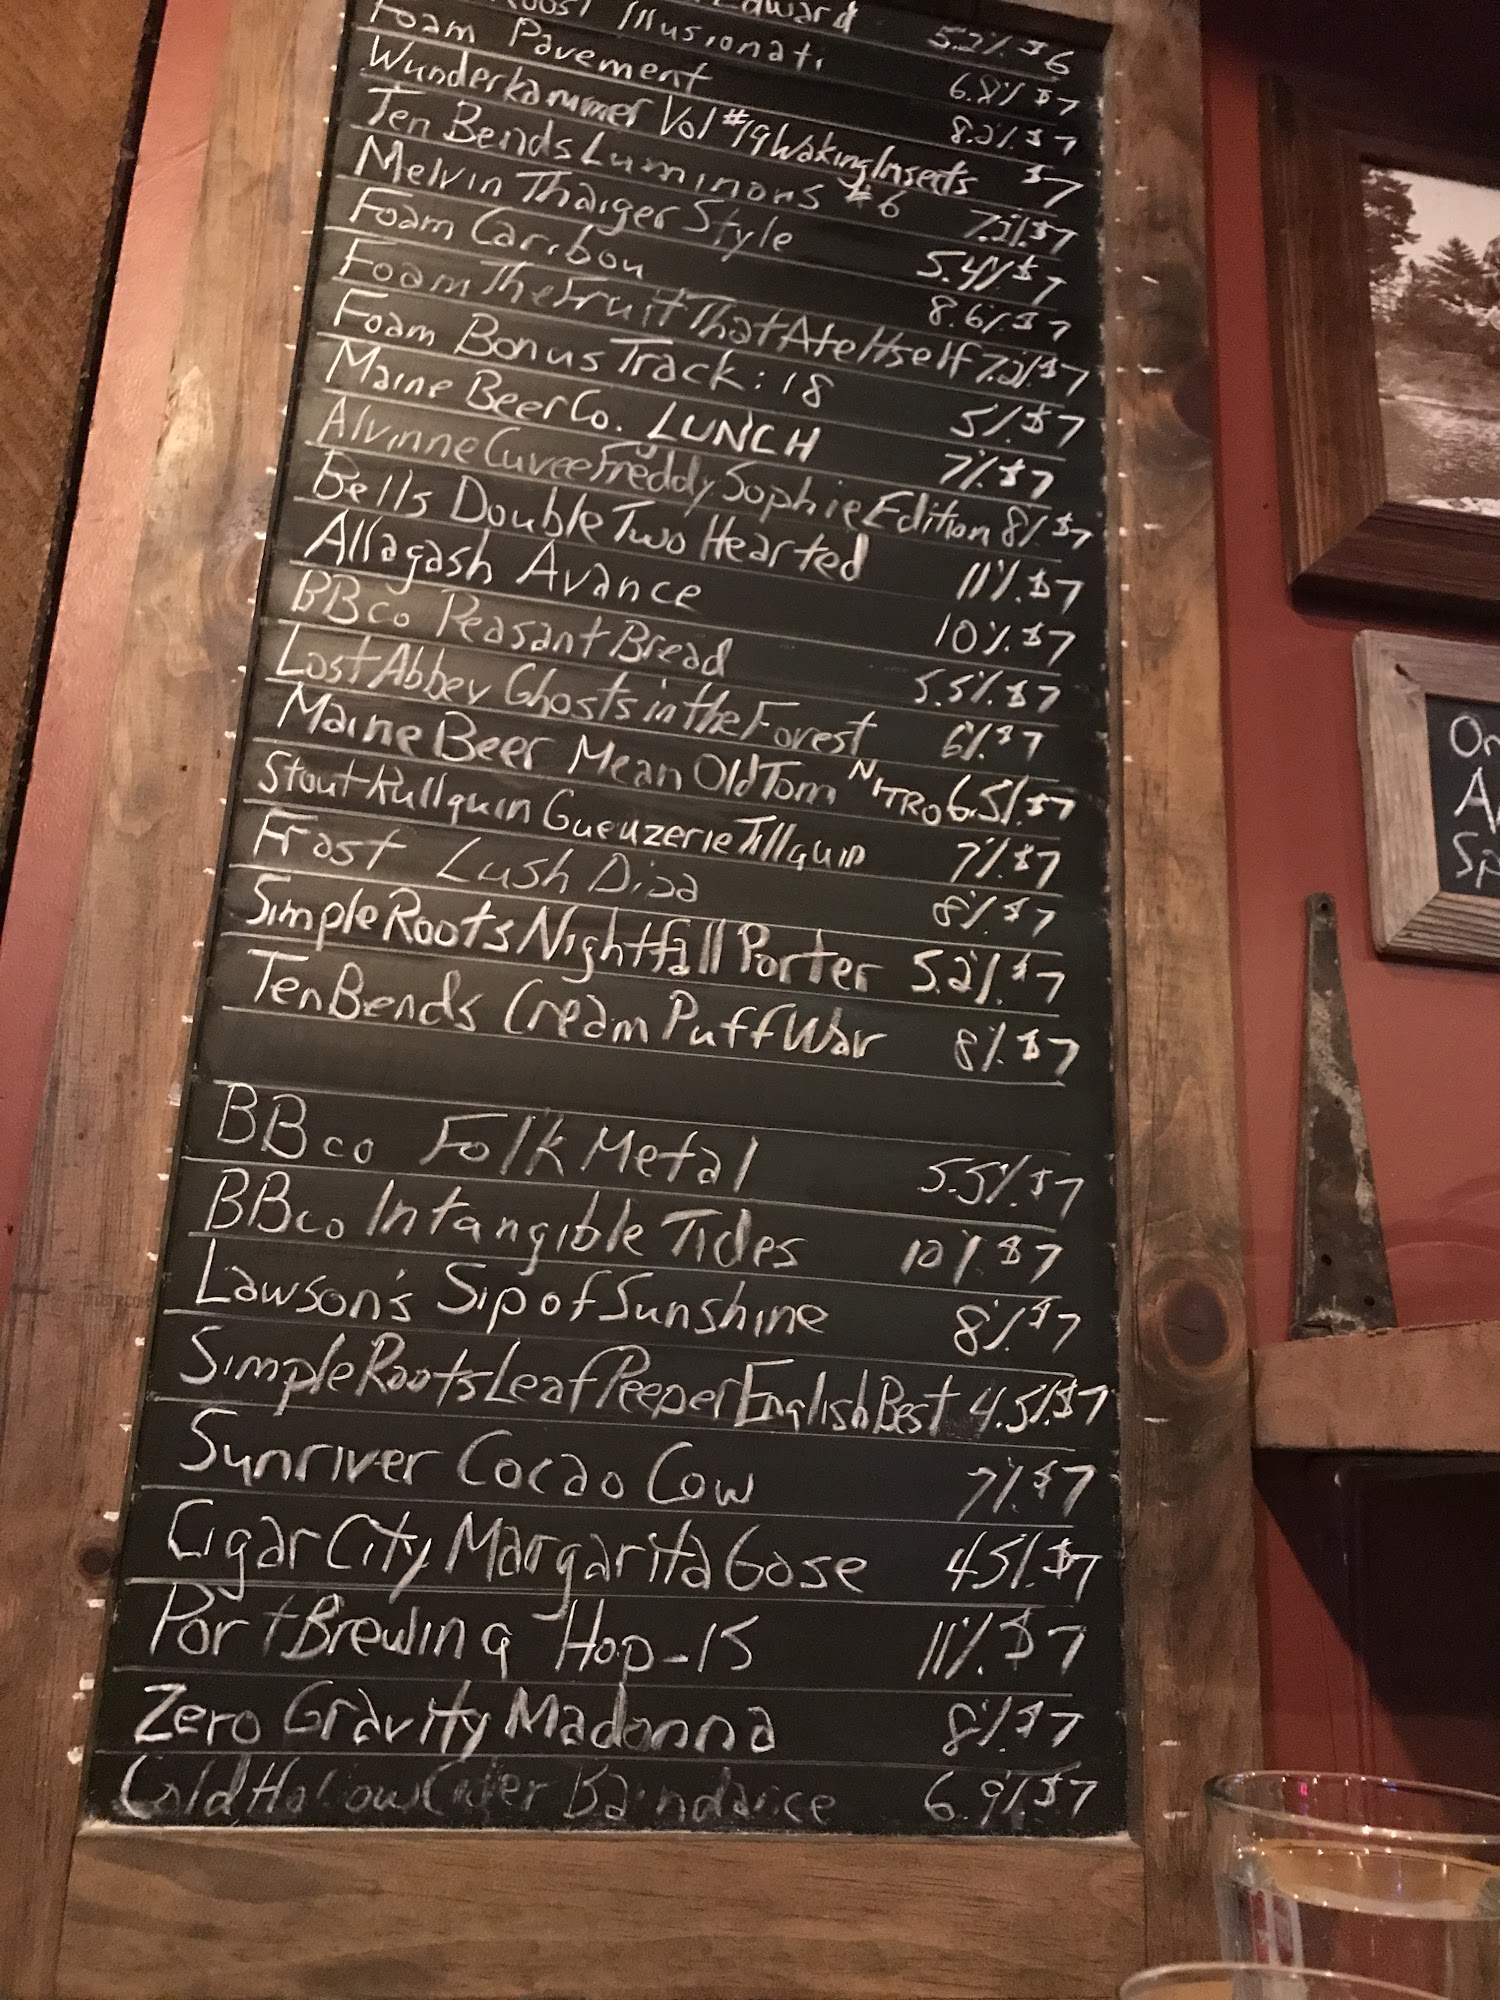 Edward 5.2% $6
Foam Illusionati 6.8% $7
Foam Pavement 8.2% $7
Wunderkammer Vol #19 Waking Insects $7
Ten Bends Luminous #6 7.2% $7
Melvin Thaiger Style 5.4% $7
Foam Caribou 8.6% $7
Foam The Fruit That Ate Itself 7.2% $7
Foam Bonus Track: 18 5% $7
Maine Beer Co. LUNCH 7% $7
Alvinne Cuvee Freddy Sophie Edition 8% $7
Bells Double Two Hearted 11% $7
Allagash Avance 10% $7
BBco Peasant Bread 5.5% $7
Lost Abbey Ghosts in the Forest 6% $7
Maine Beer Mean Old Tom NITRO 6.5% $7
Stout Rullquin Gueuzerie Tilquin 7% $7
Frost Lush Dipa 8% $7
Simple Roots Nightfall Porter 5.2% $7
Ten Bends Cream Puff War 8% $7
BBco Folk Metal 5.5% $7
BBco Intangible Tides 10% $7
Lawson's Sip of Sunshine 8% $7
Simple Roots Leaf Peeper English Best 4.5% $7
Sunriver Cocao Cow 7% $7
Cigar City Margarita Gose 4.5% $7
Port Brewing Hop-15 11% $7
Zero Gravity Madonna 8% $7
Cold Hollow Cider Barndance 6.9% $7
On
A
Sp